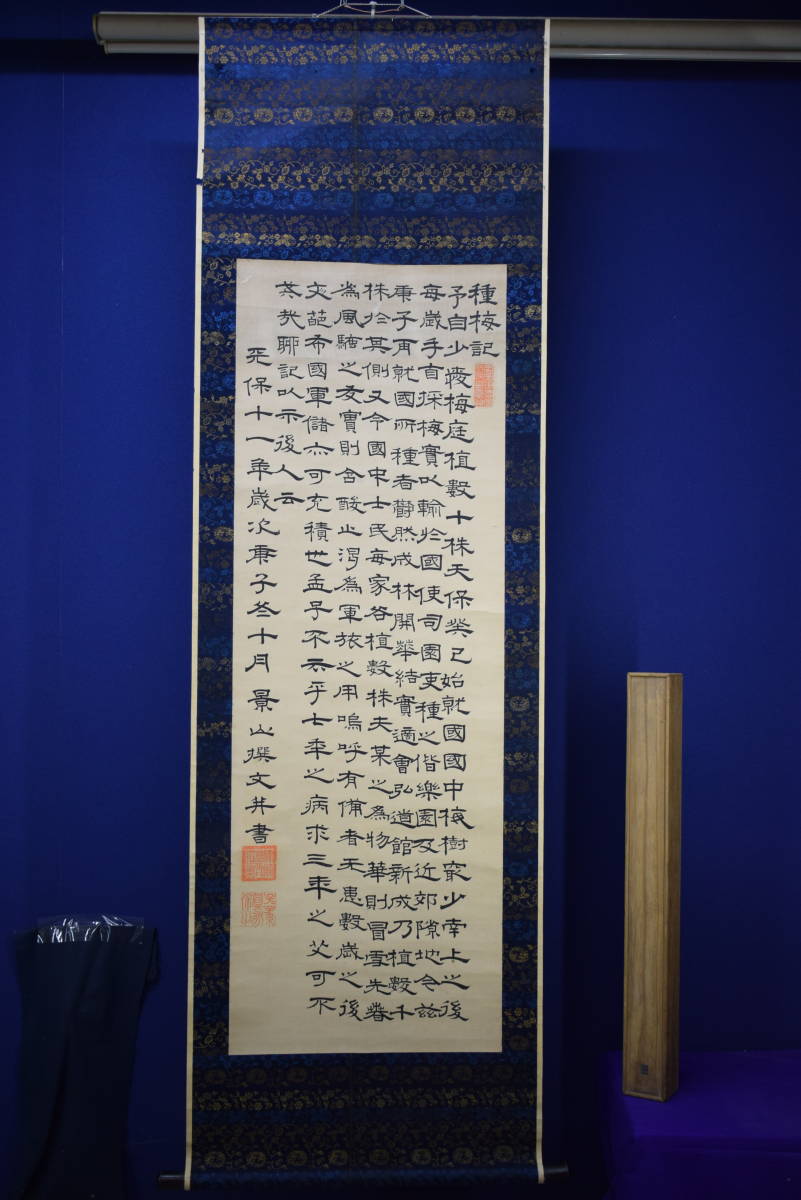 種梅記
予自少愛梅庭植數十株天保癸巳始就國國中梅樹最少南上之後
每歲手自採梅實以輸於國使司園吏種之偕樂園及近郊隙地今茲
庚子再就國所種者鬱然成林開華結實適會弘道館新成乃植數千
株於其側又令國中士民每家各植數株夫某之爲物華則冒雪先春
爲風騷之友實則含酸止渴爲軍旅之用嗚呼有備者无患數歲之後
文葩布國軍儲亦可充積也孟子不云乎七年之病求三年之艾可不
戒哉聊記以示後人云
天保十一年歲次庚子冬十月 景山撰文并書